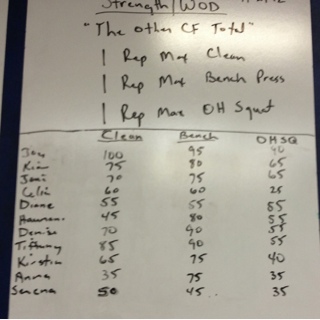 Strength/WOD
"The Other CF Total"
1 Rep Max Clean
1 Rep Max Bench Press
1 Rep Max OH Squat
Clean Bench OHSQ
100 95 90
Kim 75 80 65
70 75 65
Celia 60 60 25
Diane 55 55 55
45 80 55
Denise 70 90 55
Tiffany 85 90 55
Kirstin 65 75 40
Anna 35 75 35
Serena 50 45 35